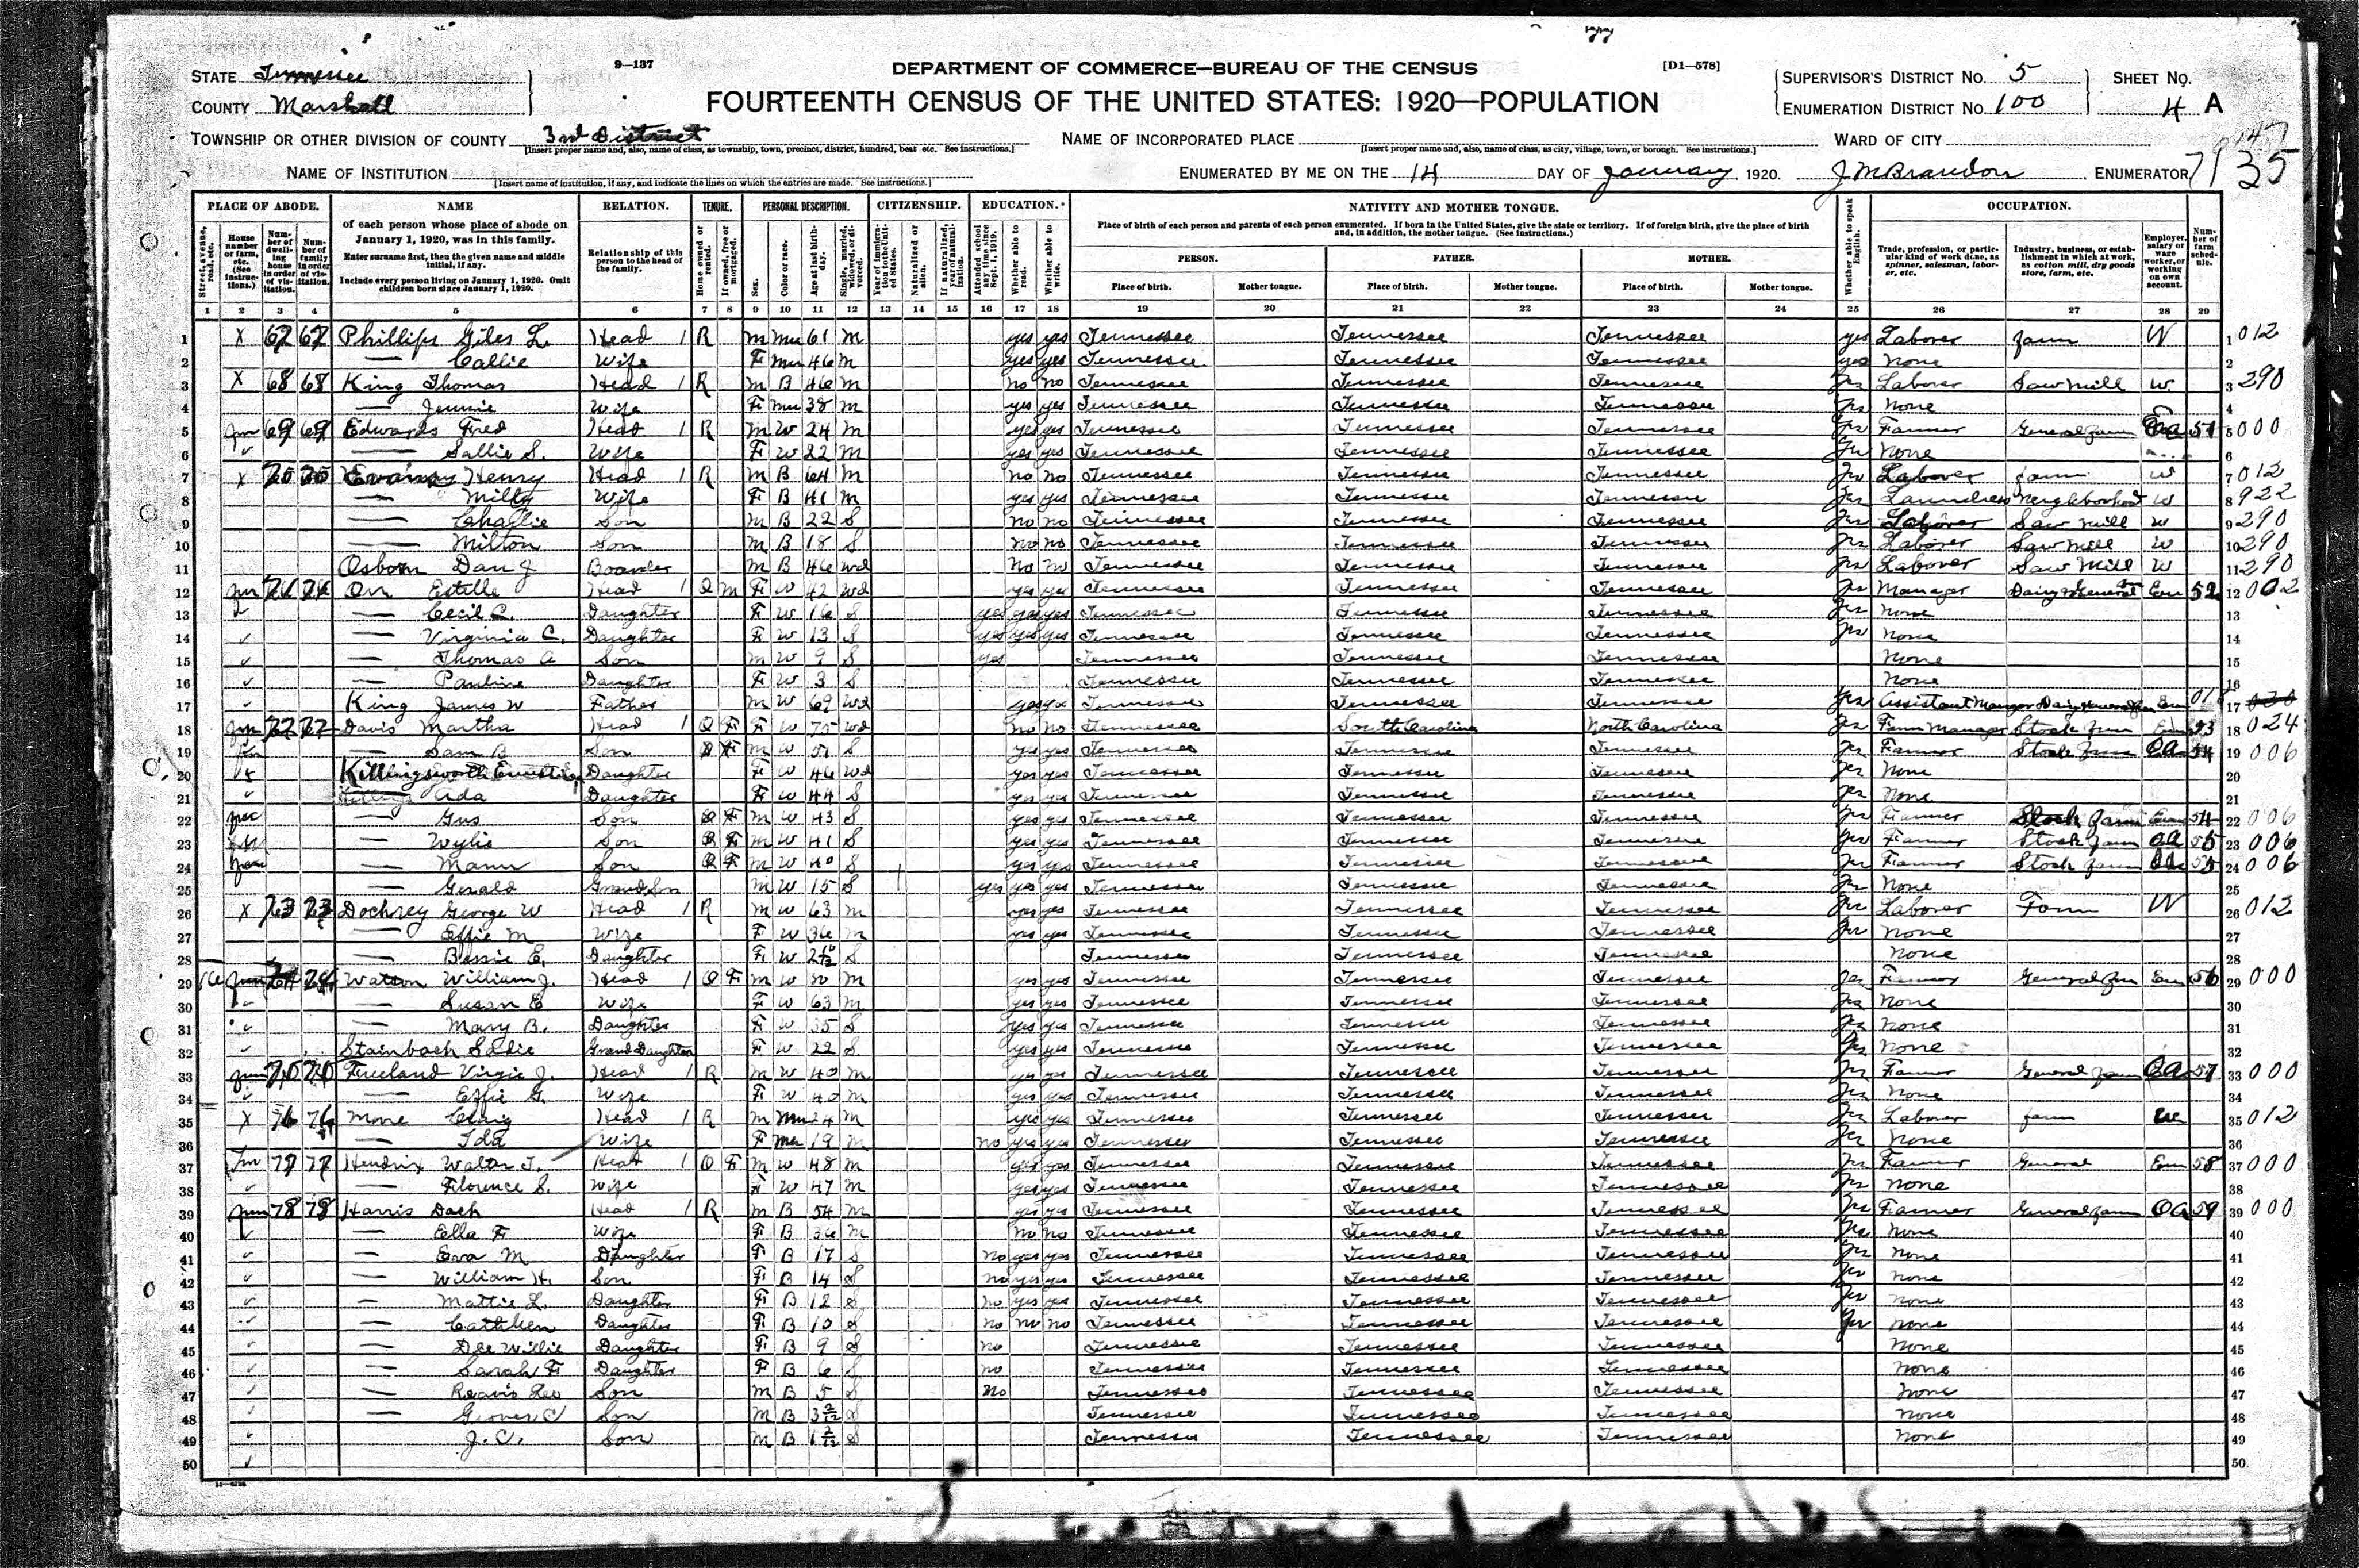 77
STATE Tennessee
9—137
DEPARTMENT OF COMMERCE—BUREAU OF THE CENSUS
[D1—578]
SUPERVISOR'S DISTRICT No. 5
SHEET No.
COUNTY Marshall
FOURTEENTH CENSUS OF THE UNITED STATES: 1920—POPULATION
ENUMERATION DISTRICT No. 100
4 A
TOWNSHIP OR OTHER DIVISION OF COUNTY 3rd District
NAME OF INCORPORATED PLACE
WARD OF CITY
[Insert proper name and, also, name of class, as township, town, precinct, district, hundred, beat etc. See instructions.]
[Insert proper name and, also, name of class, as city, village, town, or borough. See instructions.]
NAME OF INSTITUTION
ENUMERATED BY ME ON THE 14 DAY OF January, 1920. J M Brandon ENUMERATOR
[Insert name of institution, if any, and indicate the lines on which the entries are made. See instructions.]
PLACE OF ABODE. NAME RELATION. TENURE. PERSONAL DESCRIPTION. CITIZENSHIP. EDUCATION. NATIVITY AND MOTHER TONGUE. OCCUPATION.
of each person whose place of abode on January 1, 1920, was in this family.
Enter surname first, then the given name and middle initial, if any.
Include every person living on January 1, 1920. Omit children born since January 1, 1920.
Relationship of this person to the head of the family.
Place of birth of each person and parents of each person enumerated. If born in the United States, give the state or territory. If of foreign birth, give the place of birth and, in addition, the mother tongue. (See instructions.)
PERSON. FATHER. MOTHER.
Place of birth. Mother tongue. Place of birth. Mother tongue. Place of birth. Mother tongue.
Trade, profession, or particular kind of work done, as spinner, salesman, laborer, etc.
Industry, business, or establishment in which at work, as cotton mill, dry goods store, farm, etc.
Employer, salary or wage worker, or working on own account.
Number of farm schedule.
1 2 3 4 5 6 7 8 9 10 11 12 13 14 15 16 17 18 19 20 21 22 23 24 25 26 27 28 29
1 X 67 67 Phillips Giles L. Head 1 R M Mu 61 M yes yes Tennessee Tennessee Tennessee yes Laborer Farm W 1 012
2 — Callie Wife F Mu 46 M yes yes Tennessee Tennessee Tennessee yes None 2
3 X 68 68 King Thomas Head 1 R M B 46 M no no Tennessee Tennessee Tennessee yes Laborer Saw Mill W 3 290
4 — Jennie Wife F Mu 38 M yes yes Tennessee Tennessee Tennessee yes None 4
5 Fm 69 69 Edwards Fred Head 1 R M W 24 M yes yes Tennessee Tennessee Tennessee yes Farmer General farm OA 51 5 000
6 — Sallie S. Wife F W 22 M yes yes Tennessee Tennessee Tennessee yes None 6
7 X 70 70 Henry Head 1 R M B 64 M no no Tennessee Tennessee Tennessee yes Laborer Farm W 7 012
8 — Milty Wife F B 41 M yes yes Tennessee Tennessee Tennessee yes Laundress Neighborhood W 8 922
9 — Challie Son M B 22 S no no Tennessee Tennessee Tennessee yes Laborer Saw Mill W 9 290
10 — Milton Son M B 18 S no no Tennessee Tennessee Tennessee yes Laborer Saw Mill W 10 290
11 Osborn Dan J Boarder M B 46 Wd no no Tennessee Tennessee Tennessee yes Laborer Saw Mill W 11 290
12 Fm 71 71 Orr Estelle Head 1 O M F W 42 Wd yes yes Tennessee Tennessee Tennessee yes Manager Em 52 12 002
13 — Cecil C. Daughter F W 16 S yes yes yes Tennessee Tennessee Tennessee yes None 13
14 — Virginia C. Daughter F W 13 S yes yes yes Tennessee Tennessee Tennessee yes None 14
15 — Thomas A Son M W 9 S yes Tennessee Tennessee Tennessee None 15
16 — Pauline Daughter F W 3 S Tennessee Tennessee Tennessee None 16
17 King James W Father M W 69 Wd yes yes Tennessee Tennessee Tennessee yes Assistant Manager 17
18 Fm 72 72 Davis Martha Head 1 O F F W 75 Wd no no Tennessee South Carolina North Carolina yes Farm Manager Stock Farm Em 53 18 024
19 — Sam B Son M W S yes yes Tennessee Tennessee Tennessee yes Farmer Stock Farm OA 54 19 006
20 Killingsworth Daughter F W 46 Wd yes yes Tennessee Tennessee Tennessee yes None 20
21 Ada Daughter F W 44 S yes yes Tennessee Tennessee Tennessee yes None 21
22 — Gus Son O F M W 43 S yes yes Tennessee Tennessee Tennessee yes Farmer Stock Farm 54 22 006
23 — Wylie Son F M W 41 S yes yes Tennessee Tennessee Tennessee yes Farmer Stock Farm OA 55 23 006
24 — Mann Son O F M W 40 S yes yes Tennessee Tennessee Tennessee yes Farmer Stock Farm OA 55 24 006
25 — Gerald Grand Son M W 15 S yes yes yes Tennessee Tennessee Tennessee yes None 25
26 X 73 73 Dochrey George W Head 1 R M W 63 M yes yes Tennessee Tennessee Tennessee yes Laborer Farm W 26 012
27 — Effie M Wife F W 36 M yes yes Tennessee Tennessee Tennessee yes None 27
28 — Bessie E. Daughter F W S Tennessee Tennessee Tennessee None 28
29 74 74 Watson William J. Head 1 O F M W M yes yes Tennessee Tennessee Tennessee yes Farmer General Farm Em 56 29 000
30 — Susan E Wife F W 63 M yes yes Tennessee Tennessee Tennessee yes None 30
31 — Mary B. Daughter F W 35 S yes yes Tennessee Tennessee Tennessee yes None 31
32 Stainback Sadie Grand Daughter F W 22 S yes yes Tennessee Tennessee Tennessee yes None 32
33 Fm 75 75 Freeland Virgie J. Head 1 R M W 40 M yes yes Tennessee Tennessee Tennessee yes Farmer General farm OA 57 33 000
34 — Effie G. Wife F W 40 M yes yes Tennessee Tennessee Tennessee yes None 34
35 X 76 76 Mone Craig Head 1 R M Mu 24 M yes yes Tennessee Tennessee Tennessee yes Laborer farm W 35 012
36 — Ida Wife F Mu 19 M no yes yes Tennessee Tennessee Tennessee yes None 36
37 Fm 77 77 Hendrix Walter J. Head 1 O F M W 48 M yes yes Tennessee Tennessee Tennessee yes Farmer General Em 58 37 000
38 — Florence S. Wife F W 47 M yes yes Tennessee Tennessee Tennessee yes None 38
39 Fm 78 78 Harris Dack Head 1 R M B 54 M yes yes Tennessee Tennessee Tennessee yes Farmer General farm OA 59 39 000
40 — Ella F Wife F B 36 M no no Tennessee Tennessee Tennessee yes None 40
41 — Eva M Daughter F B 17 S no yes yes Tennessee Tennessee Tennessee yes None 41
42 — William H. Son F B 14 S no yes yes Tennessee Tennessee Tennessee yes None 42
43 — Mattie L. Daughter F B 12 S no yes yes Tennessee Tennessee Tennessee yes None 43
44 — Cathleen Daughter F B 10 S no no no Tennessee Tennessee Tennessee yes None 44
45 — Dee Willie Daughter F B 9 S no Tennessee Tennessee Tennessee None 45
46 — Sarah F Daughter F B 6 S no Tennessee Tennessee Tennessee None 46
47 — Reavis Leo Son M B 5 S no Tennessee Tennessee Tennessee None 47
48 — Grover C Son M B 3 2/12 S Tennessee Tennessee Tennessee None 48
49 J. C. Son M B 1 2/12 S Tennessee Tennessee Tennessee None 49
50 50